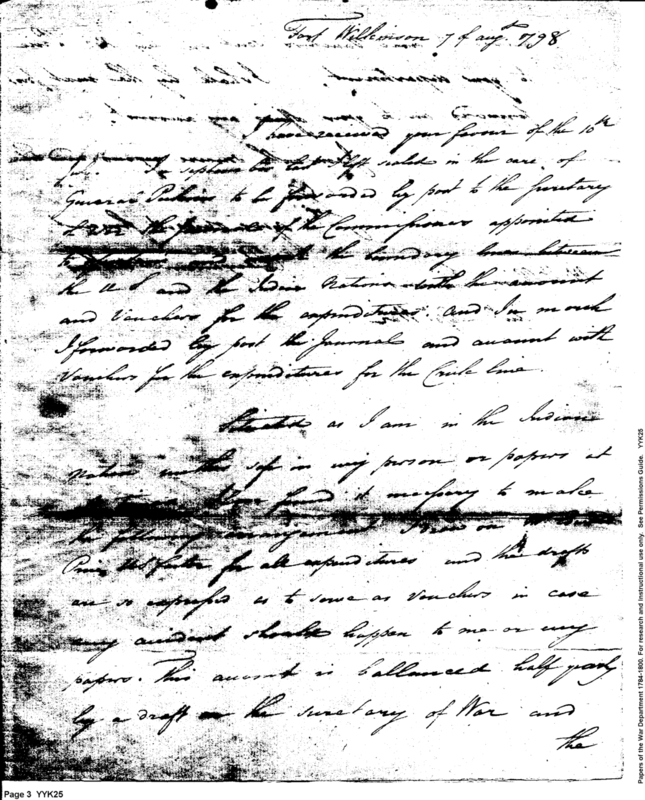 Fort Wilkinson 7 of augt. 1798
I have received your favour of the 10th
In september last I left sealed in the care of
General Pickens to be forwarded by post to the Secretary
of War the Journals of the Commissioners appointed
to the boundary lines between
the U S and the Indian Nations with the amount
and Vouchers for the expenditures and In march
I forwarded by post the Journal and account with
Vouchers for the expenditures for the Creek line.
Situated as I am in the Indian
nation neither safe in my person or papers at
times I have found it necessary to make
the following arrangement I draw on
Price U S factor for all expenditures and the drafts
are so expressed as to serve as Vouchers in case
any accident should happen to me or my
papers. This account is ballanced half yearly
by a draft on the secretary of War and
the
Page 3 YYK25
Papers of the War Department 1784-1800. For research and instructional use only. See Permissions Guide. YYK25